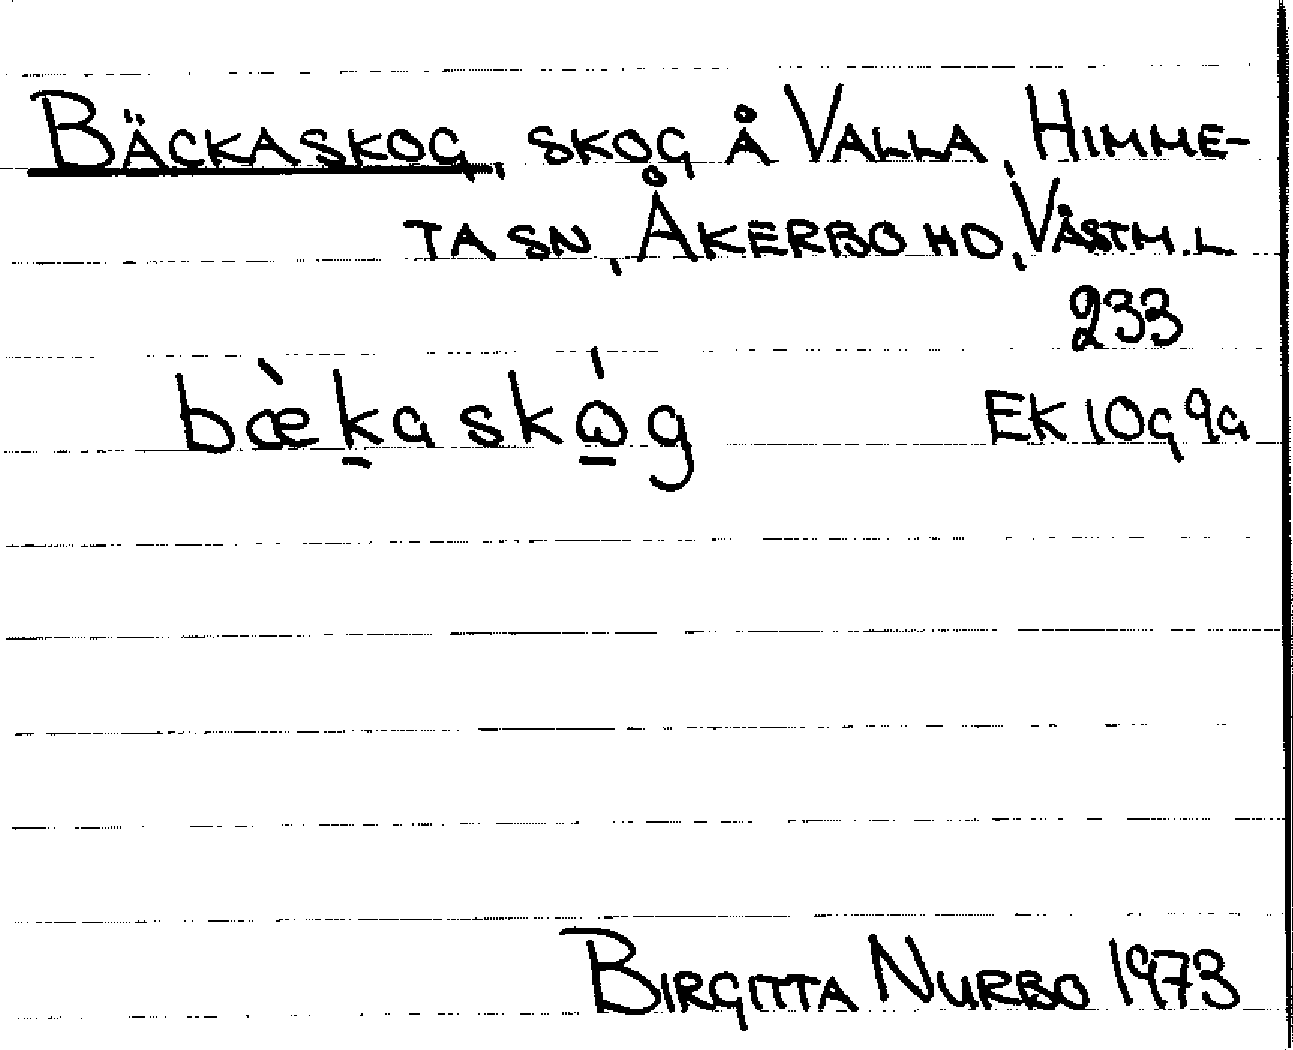 BÄCKASKOG, SKOG Å VALLA, HIMME-
TA SN, ÅKERBO HD, VÄSTM.L.
233
bæ̀k̠askώ̠g
EK 10g 9a
BIRGITTA NURBO 1973